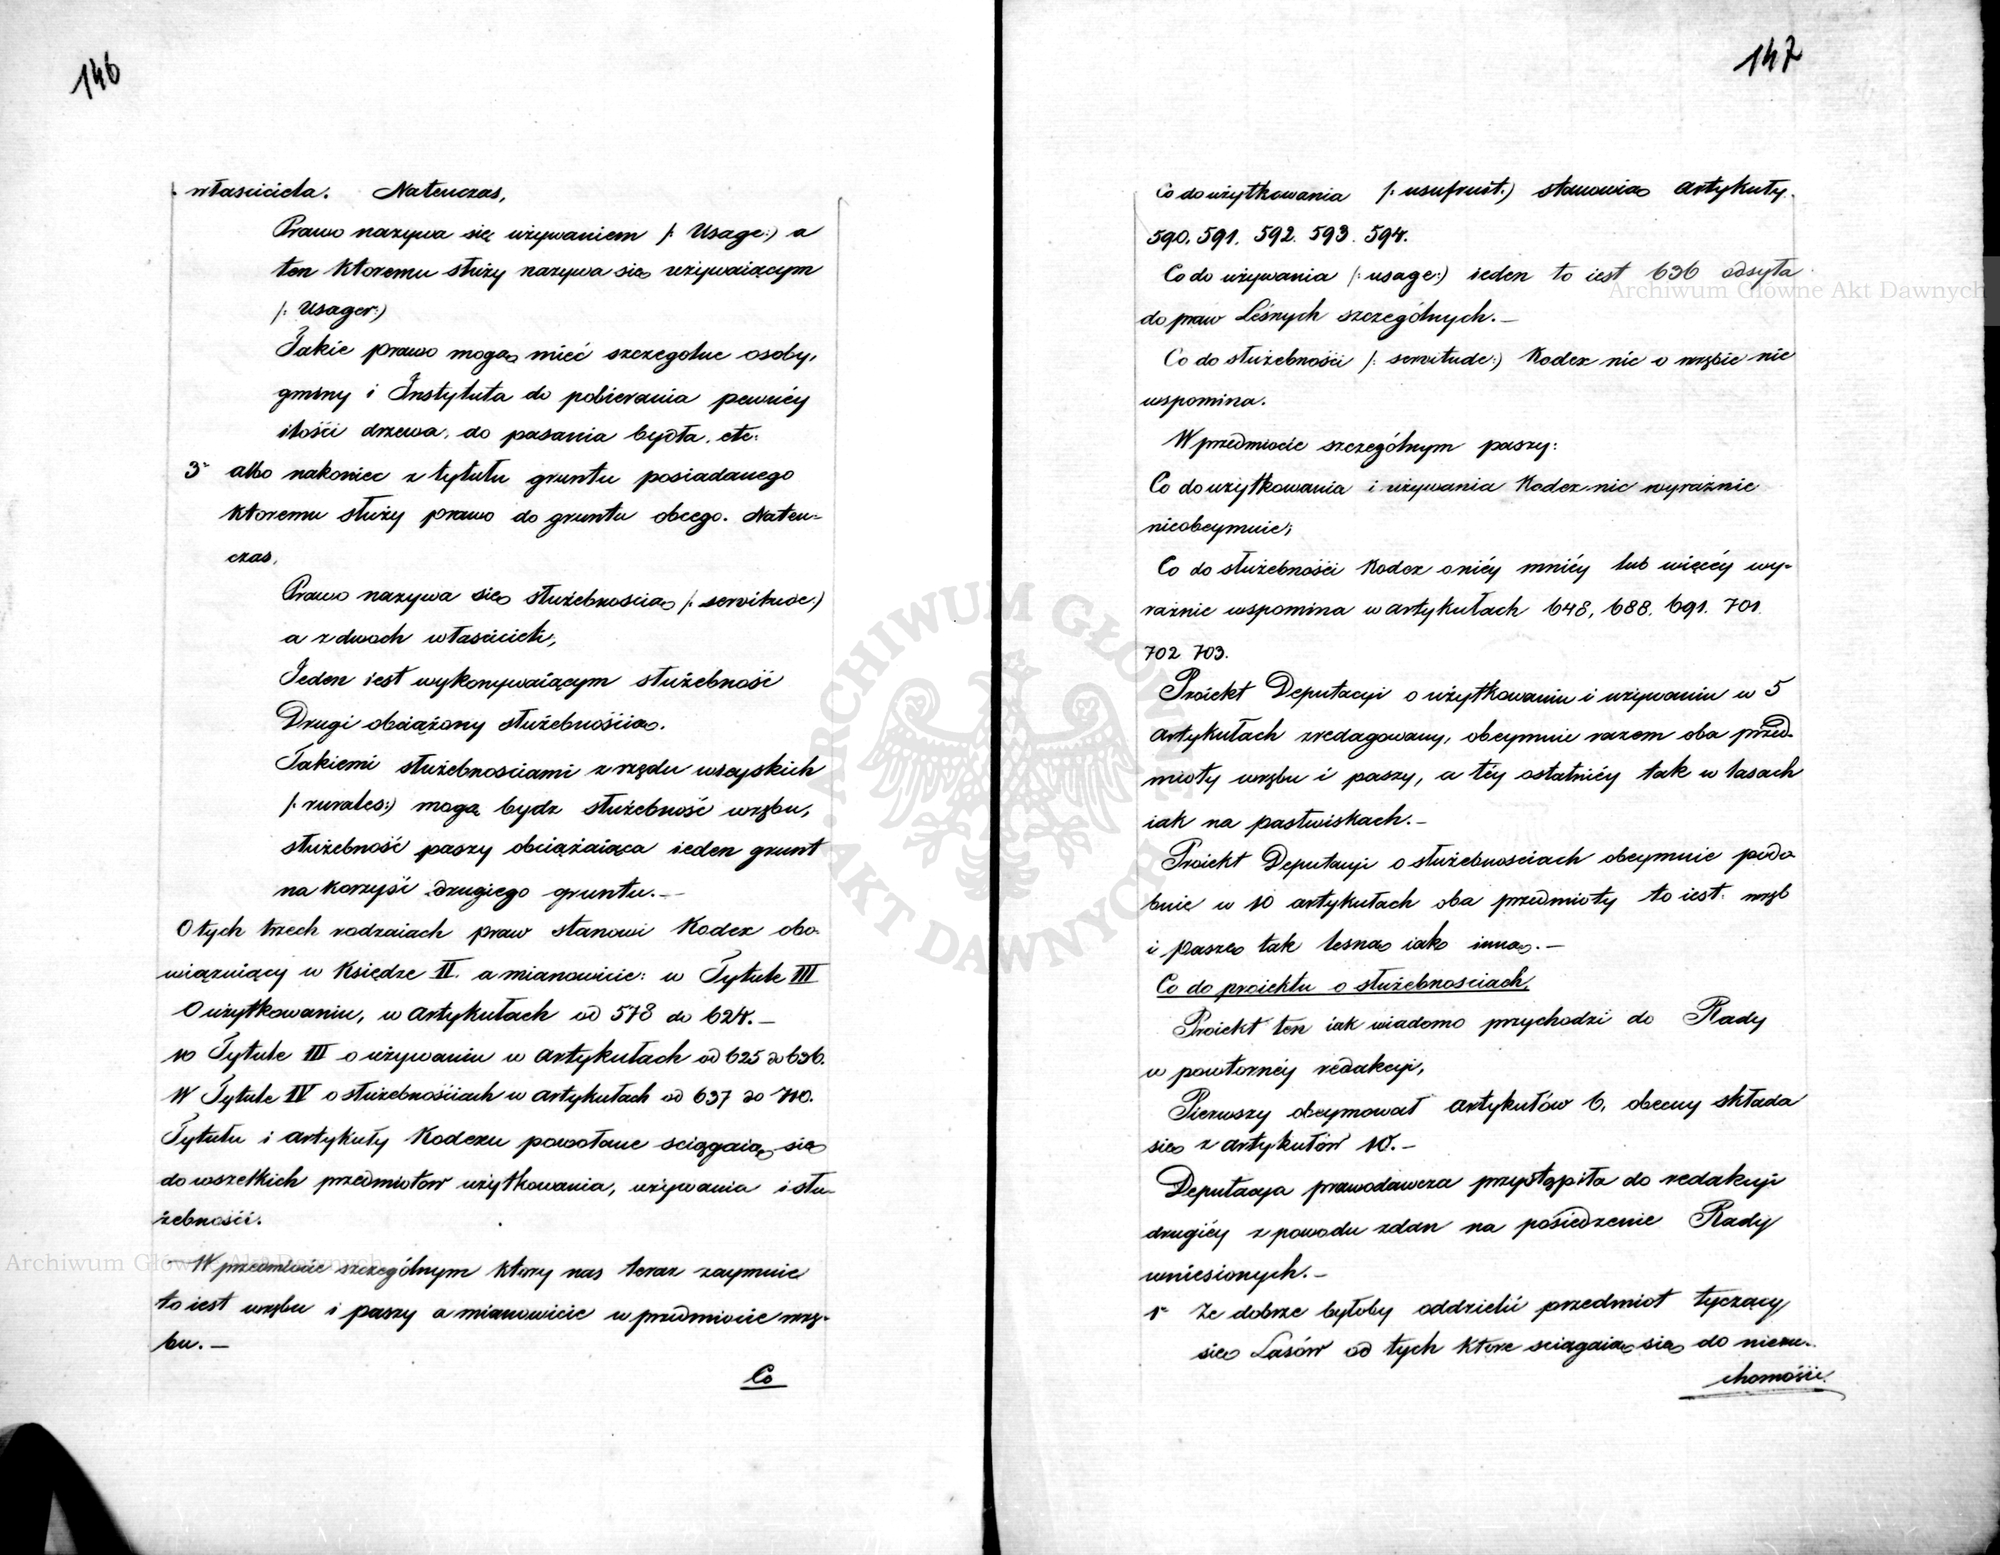 146
właściciela. Natenczas,
Prawo nazywa się używaniem /: Usage:) a
ten ktoremu służy nazywa się używaiącym
/: Usager:)
Takie prawo mogą mieć szczegolne osoby,
gminy i Instytuta do pobierania pewnéy
ilości drzewa, do pasania bydła, etc:
3° albo nakoniec z tytułu gruntu posiadanego
ktoremu służy prawo do gruntu obcego. Naten-
czas,
Prawo nazywa się służebnoscią /: servitude:)
a z dwoch właścicieli,
Jeden iest wykonywaiącym służebność
Drugi obciążony służebnością.
Takiemi służebnosciami z rzędu wieyskich
/: rurales:) mogą bydz służebność wrębu,
służebność paszy obciążaiąca ieden grunt
na korzyść drugiego gruntu.—
O tych trzech rodzaiach praw stanowi Kodex obo-
wiązuiący w Księdze II. a mianowicie: w Tytule III
O użytkowaniu, w artykułach od 578 do 624.—
w Tytule III o używaniu w artykułach od 625 do 636.
W Tytule IV o służebnościach w artykułach od 637 do 710.
Tytułu i artykuły Kodexu powołane sciągaią się
do wszelkich przedmiotów użytkowania, używania i słu-
żebności.
W przedmiocie szczególnym ktory nas teraz zaymuie
to iest wrębu i paszy a mianowicie w przedmiocie wrę-
bu.—
Co
147
Co do użytkowania /: usufruit:) stanowią artykuły.
590. 591. 592. 593. 594.
Co do używania /: usage:) ieden to iest 636 odsyła
do praw Leśnych szczególnych.—
Co do służebności /: servitude:) Kodex nic o wrębie nie
wspomina.
W przedmiocie szczególnym paszy:
Co do użytkowania i używania Kodex nic wyraźnie
nieobeymuie;
Co do służebności Kodex o niéy mniéy lub więcéy wy-
raźnie wspomina w artykułach 648, 688. 691. 701
702 703.
Proiekt Deputacyi o użytkowaniu i używaniu w 5
artykułach zredagowany, obeymuie razem oba przed-
mioty wrębu i paszy, a téy ostatniéy tak w lasach
iak na pastwiskach.—
Proiekt Deputacyi o służebnosciach obeymuie podo
bnie w 10 artykułach oba przedmioty to iest: wręb
i paszę tak lesną iako inną.—
Co do proiektu o służebnosciach.
Proiekt ten iak wiadomo przychodzi do Rady
w powtornéy redakcyi,
Pierwszy obeymował artykułów 6, obecny składa
się z artykułów 10.—
Deputacya prawodawcza przystąpiła do redakcyi
drugiéy z powodu zdan na posiedzenie Rady
wniesionych.—
1° Ze dobrze byłoby oddzielić przedmiot tyczący
się Lasów od tych ktore sciągaią się do nieru-
chomości.
Archiwum Główne Akt Dawnych
Archiwum Główne Akt Dawnych
ARCHIWUM GŁÓWNE AKT DAWNYCH